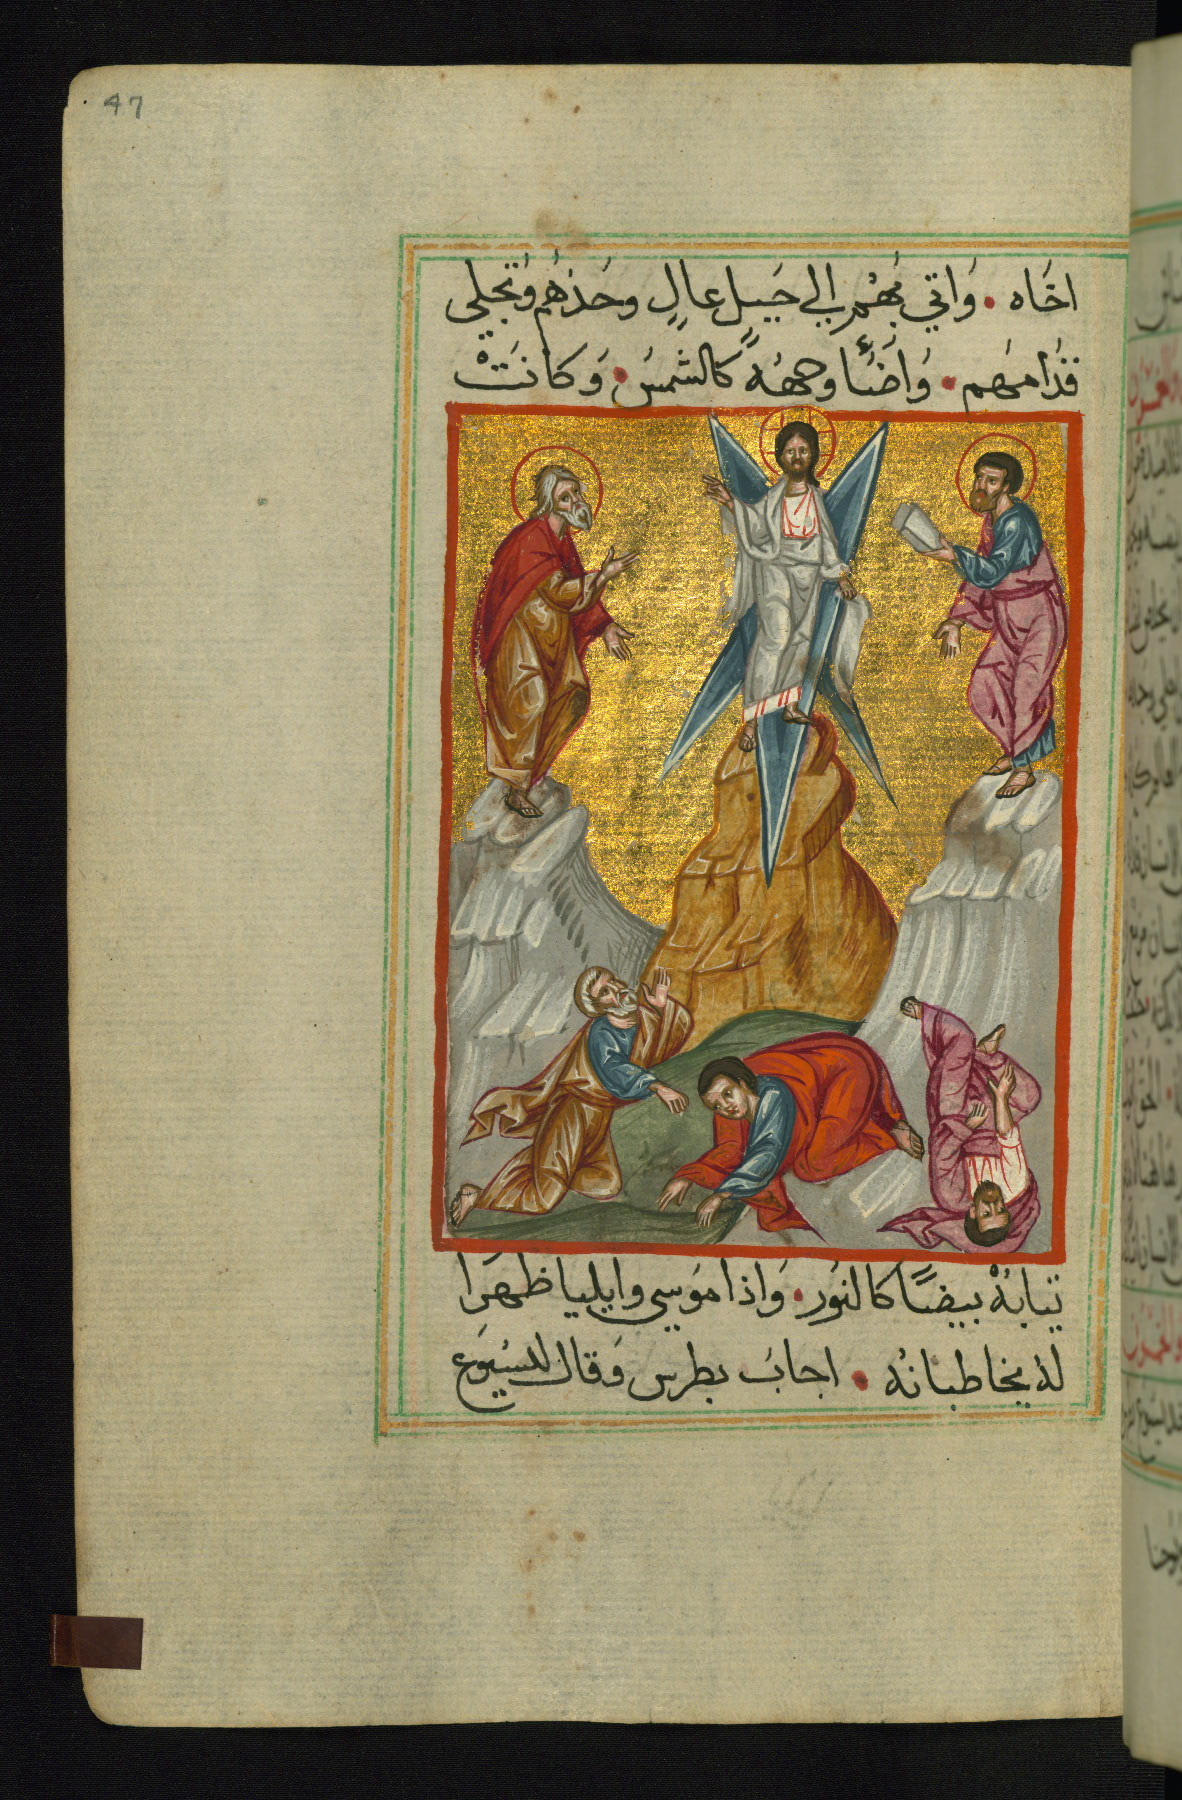 47
اخَاه • وَاتي بهُم الي جَبل عالٍ وحَدَهُم وَتجَلي
قدُامهُم • وَاضَئا وجههُ كالشمسَ • وَكانَتْ
ثيابهُ بيضًا كالنوُر • وَاذا موَسي وايليا ظهرَا
لهُ يخاطبانهُ • اجابَ بطرس وَقال لليسُوَع